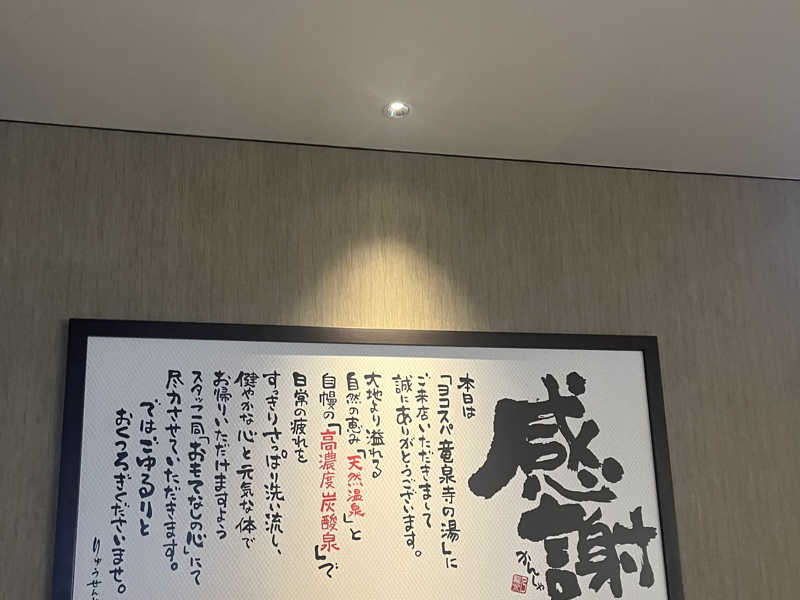 感謝
かんしゃ
本日は
「ヨコスパ竜泉寺の湯」に
ご来店いただきまして
誠にありがとうございます。
大地より溢れる
自然の恵み「天然温泉」と
自慢の「高濃度炭酸泉」で
日常の疲れを
すっきりさっぱり洗い流し、
健やかな心と元気な体で
お帰りいただけますよう
スタッフ一同「おもてなしの心」にて
尽力させていただきます。
ではごゆるりと
おくつろぎくださいませ。
りゅうせん